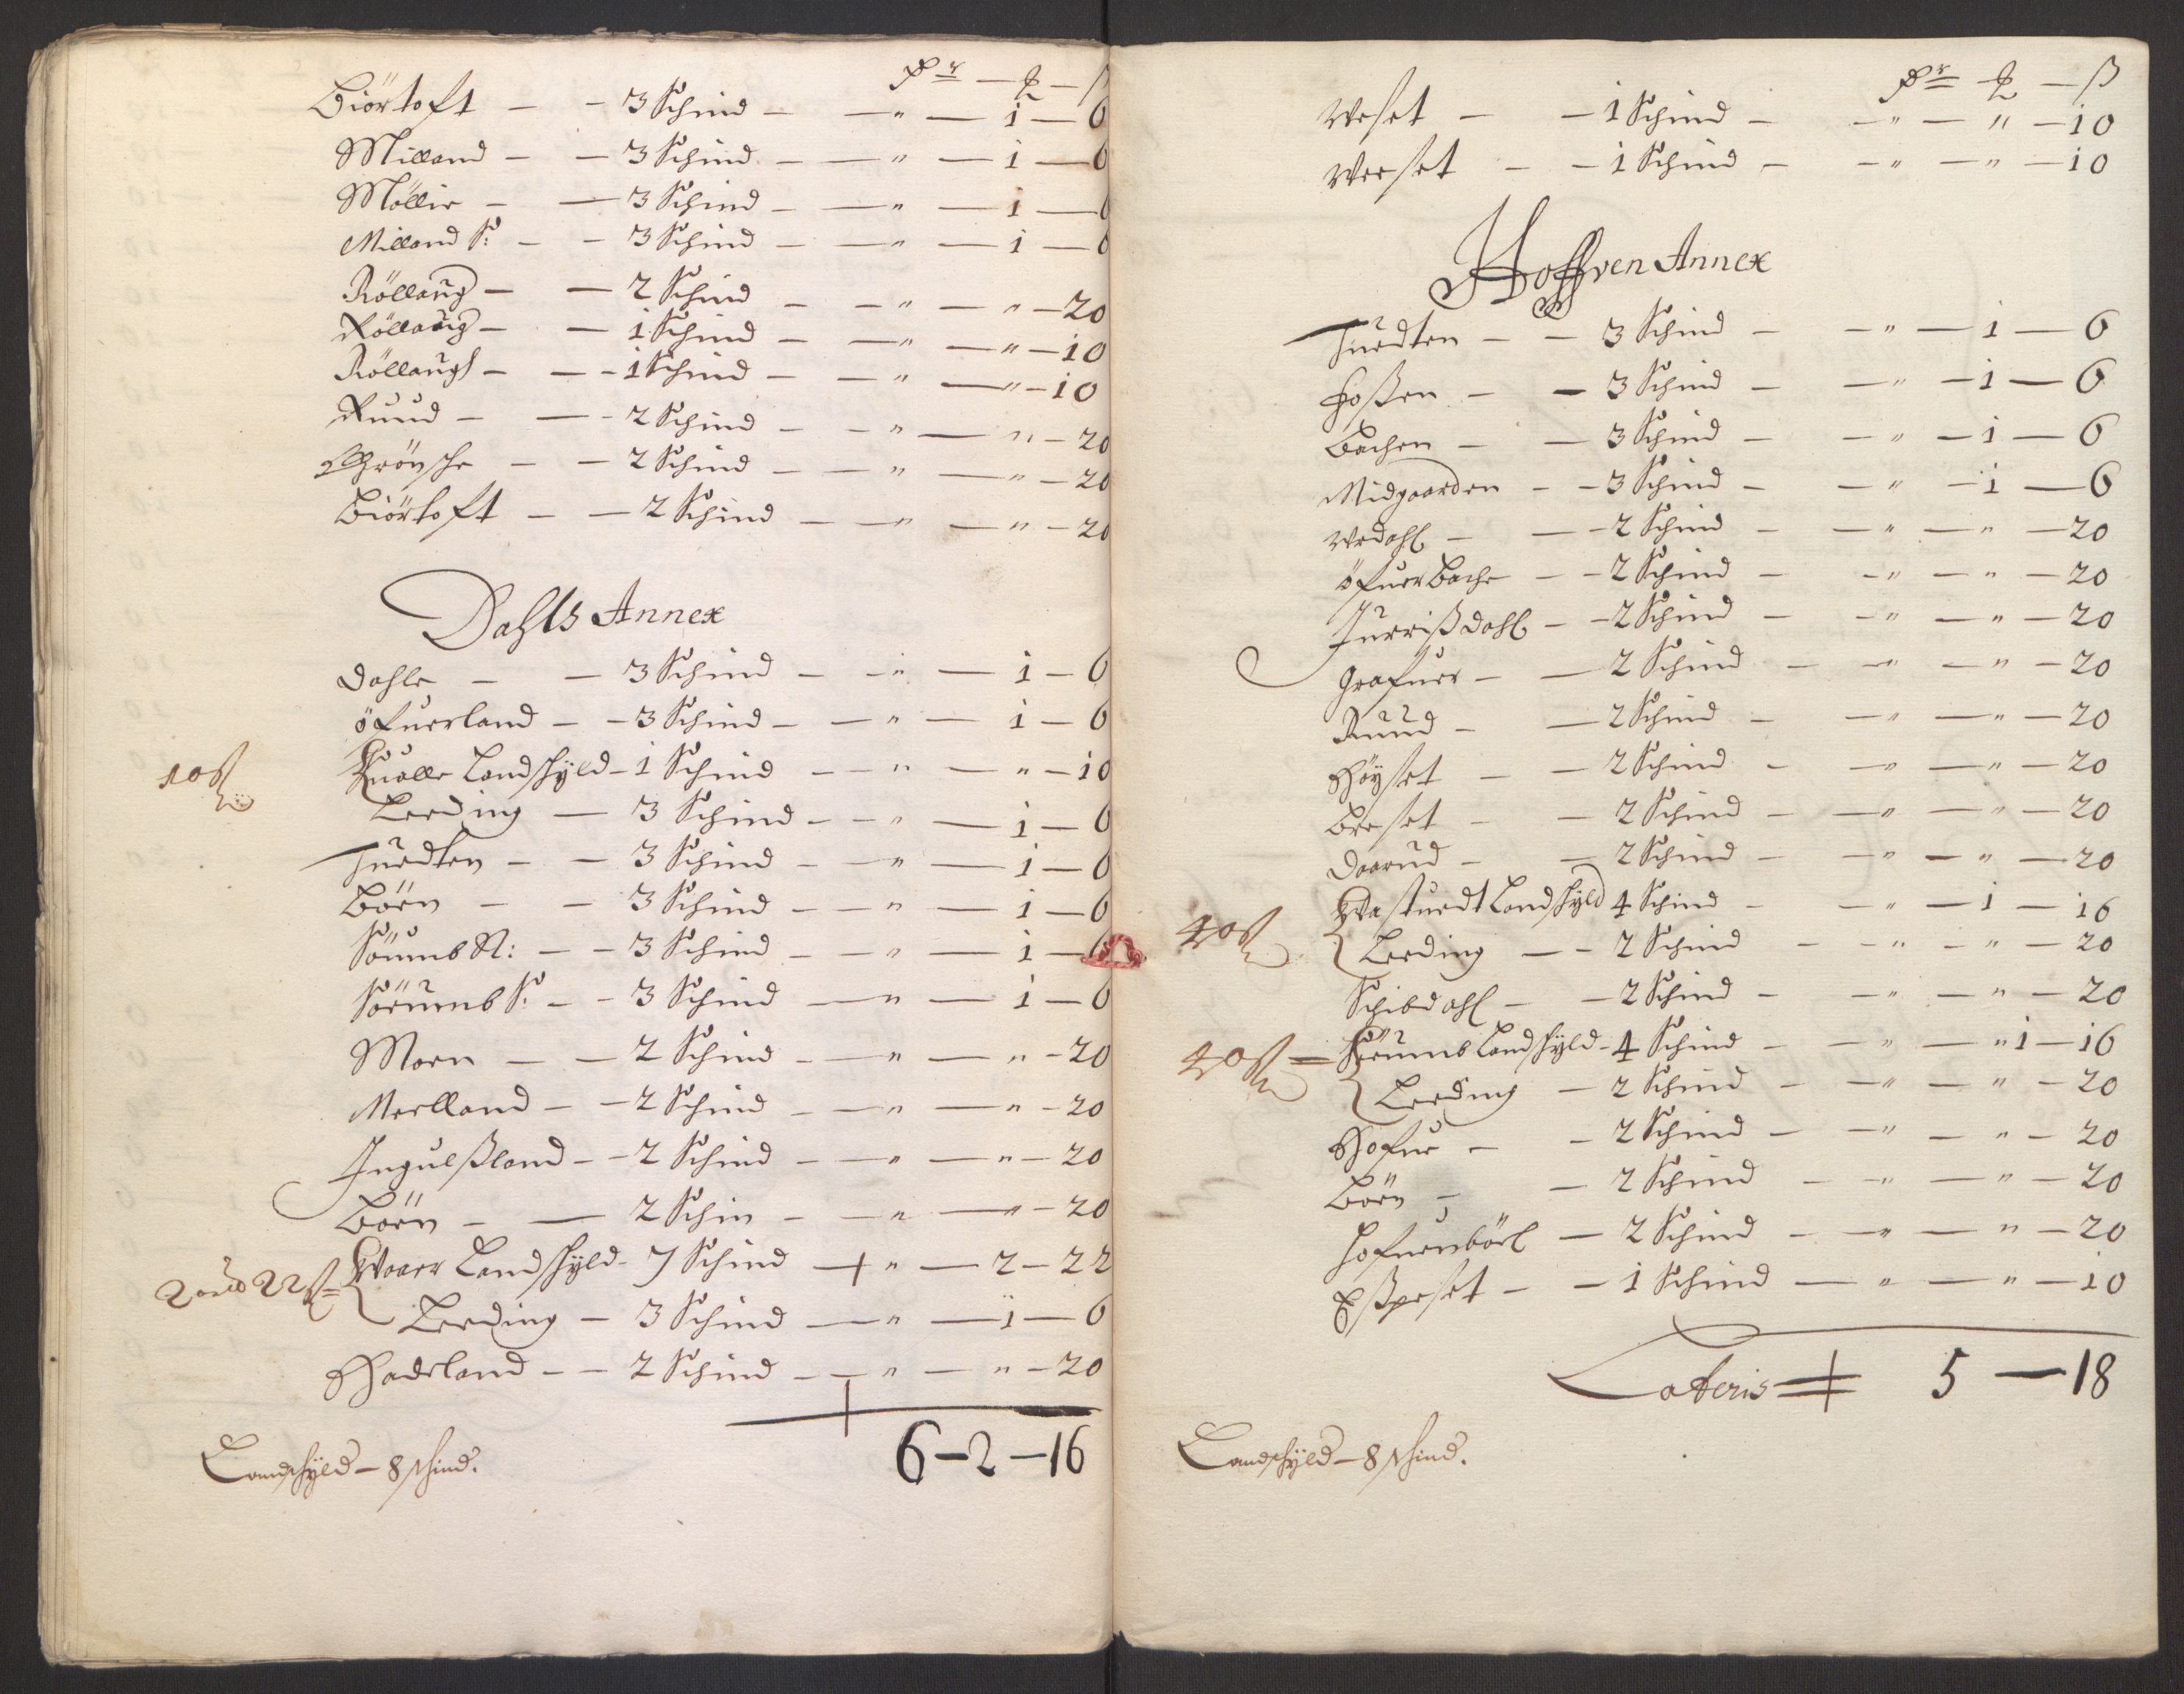 Biörtoft – – 3 Schind – – " – 1 – 6
Milland – – 3 Schind – – " – 1 – 6
Möllir – – 3 Schind – – " – 1 – 6
Milland S: – – 3 Schind – – " – 1 – 6
Röllaug – – 2 Schind – – " – " – 20
Röllaug – – 1 Schind – – " – " – 10
Röllaugs – – 1 Schind – – " – " – 10
Ruud – – 2 Schind – – " – " – 20
– 2 Schind – – " – " – 20
Biörtoft – – 2 Schind – – " – " – 20
Dahls Annex
Dahle – – 3 Schind – – " – 1 – 6
öfuerland – – 3 Schind – – " – 1 – 6
10 ß
Qualle Landschyld – 1 Schind – – " – " – 10
Leeding – 3 Schind – – " – 1 – 6
Tuedten – – 3 Schind – – " – 1 – 6
Böen – – 3 Schind – – " – 1 – 6
Söumb N: – – 3 Schind – – " – 1 – 6
Sörumb S: – – 3 Schind – " – 1 – 6
Moen – – 2 Schind – – " – " – 20
Merlland – – 2 Schind – – " – " – 20
Ingulßland – – 2 Schind – – " – " – 20
Böen – – 2 Schin – – " – " – 20
2 22 ß
Waaer Landschyld – 7 Schind – " – 2 – 22
Leeding – 3 Schind – " – 1 – 6
Haderland – – 2 Schind – – " – " – 20
6 – 2 – 16
Landschyld – 8 schind.
– ß
Weset – – 1 Schind – – " – " – 10
Weeset – – 1 Schind – – " – " – 10
Hoffven Annex
Tuedten – – 3 Schind – – " – 1 – 6
Foßen – – 3 Schind – – " – 1 – 6
Bachen – – 3 Schind – – " – 1 – 6
Midgaarden – – 3 Schind – – " – 1 – 6
Wedahl – – 2 Schind – – " – " – 20
öfuer Bache – – 2 Schind – – " – " – 20
Jurrißdahl – – 2 Schind – – " – " – 20
Grafuer – – 2 Schind – – " – " – 20
Ruud – – 2 Schind – – " – " – 20
Höyset – – 2 Schind – – " – " – 20
Breset – – 2 Schind – – " – " – 20
Daarud – – 2 Schind – – " – " – 20
40 ß
Wastuedt Landschyld 4 Schind – – " – 1 – 16
Leeding – – 2 Schind – – " – " – 20
Schibdahl – – 2 Schind – – " – " – 20
40 ß – Sörumb Landschyld – 4 Schind – – " – " 1 – 16
Leeding – 2 Schind – – " – " – 20
Hofue – – 2 Schind – – " – " – 20
Böen – – 2 Schind – – " – " – 20
Hofuenböel – 2 Schind – – " – " – 20
Eßpeset – – 1 Schind – " – " – 10
Lateris 5 – 18
Landschyld – 8 schind.